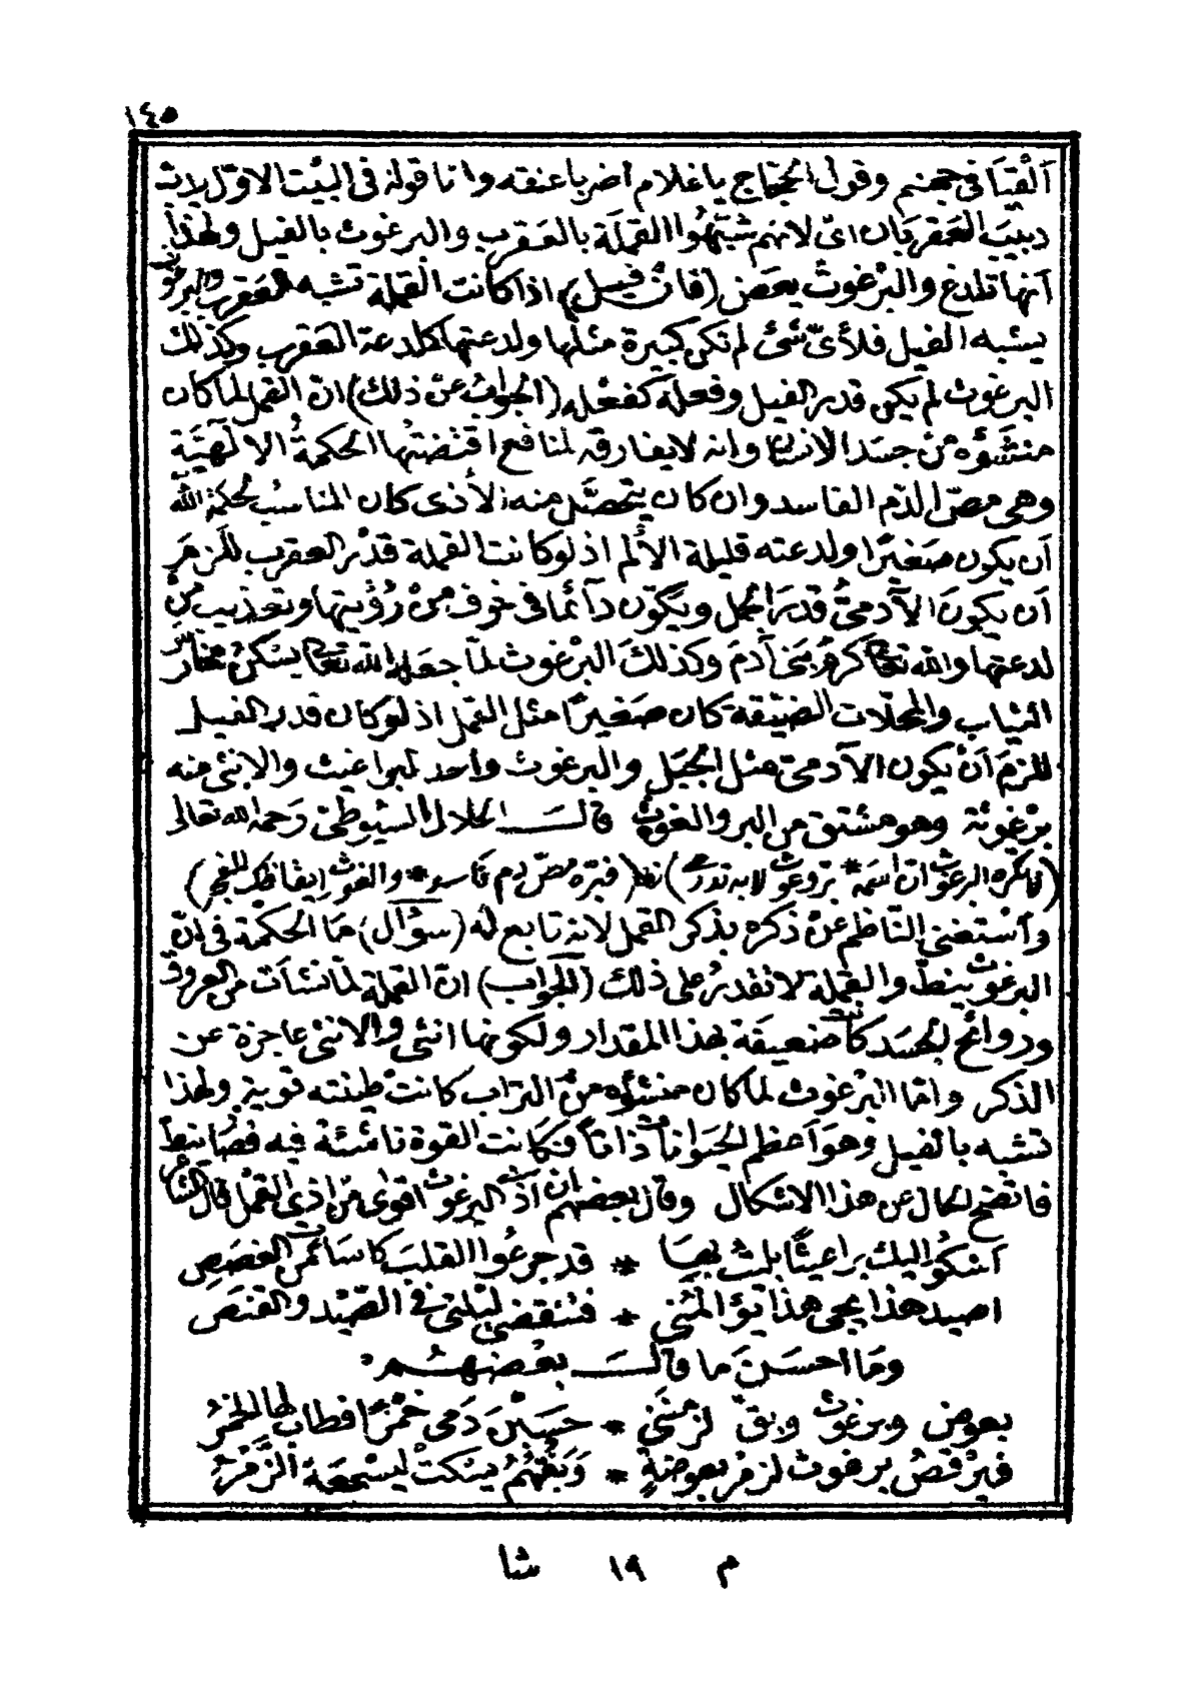 ١٤٥
اَلْقِيَا فى جهنم وقول الحجاج يا غلام اضربا عنقه واما قوله فى البيت الاوّل لات
دبيبَ العقربان اىْ لانهم شبّهُوا القملة بالعقرب والبرغوث بالفيل ولهذا
اَنها تلدغ والبرْغوثُ يعض (فان قيل) اذا كانت القملة تشبه العقرب والبرغوث
يشبه الفيل فلأىّ شئ لم تكن كبيرة مثلها ولدغتها كلدغة العقرب وكذلك
البرغوث لم يكن قدر الفيل وفعله كفعْله (الجوابُ عن ذلك) انّ القمل لما كان
منشَؤُه من جسَد الانسان وانه لا يفارقه لمنافع اقتضتها الحكمةُ الالٓهيّة
وهى مصّ الدّم الفاسد وان كان يتحصَّل منه الأذى كان المناسبُ لحكمة الله
اَن يكون صَغيرًا ولدغته قليلة الألم اذ لو كانت القملة قدْر العقرب للزم
اَن يكونَ الآدمىُّ قدرَ الجمل ويكون دآئما فى خوف منْ رُؤْيتها وتعذيب منْ
لدغتها والله تعالى كرم بنى آدمَ وكذلكَ البرْغوث لمّا جعله الله تعالى يسكنُ
الثياب والمحلّات الضيّقة كان صَغيرًا مثل القمل اذ لو كان قدر الفيل
للزمَ اَنْ يكون الآدمىّ مثل الجبَل والبرغوث واحد البراغيث والانثى منه
برْغوثة وهو مشتق من البر والغوث قال الجلال السّيوطىّ رَحمه الله تعالى
(لا تكره البرغوث انّ اسمه * برّ وغوث لا به تدرى) (فبرّه مصّ دم فاسد * والغوث ايقاظك للفجر)
واسْتغنى النّاظم عنْ ذكره بذكر القمل لانه تابع له (سؤآل) مَا الحكْمة فى انّ
البرغوث ينطّ والقملة لا تقدرُ على ذلك (الجواب) انّ القملة لمّا نشأت من العروق
وروائح الجسَد كانت ضَعيفَة بهذا المقدار ولكونها انثى والانثى عاجزة عن
الذكر وامّا البرْغوث لما كان منشؤُه منَ التراب كانتْ طينته قوية ولهذا
تشبه بالفيل وهوَ اَعظم الحيَوانات ذاتًا فكَانت القوة ناشئة فيه فصَار ينطّ
فاتضح الحال عن هذا الاشكال وقال بعضهم ان اَذى البرغوث اقوى من اذى القمْل قال الشاعر
اَشكُو اليك براغيثًا بليْت بهَا * قد جرعُوا القلبَ كاسَات من الغصَصِ
اصيد هذا يجى هذا يؤ المنى * فتنقضى ليْلتى فى الصّيْد والقنَص
ومَا احسَنَ ما قال بعْضهمْ
بعوض وبرغوثٌ وبقّ لزمْننى * حسَبْنَ دَمى خمْرًا فطابَ لها الخمْرُ
فيرْقصُ برغوث لزمْر بعوضَةٍ * وَبَقّهُمْ يسْكتْ ليسْمعَ الزَّمْرُ
م ١٩ شا